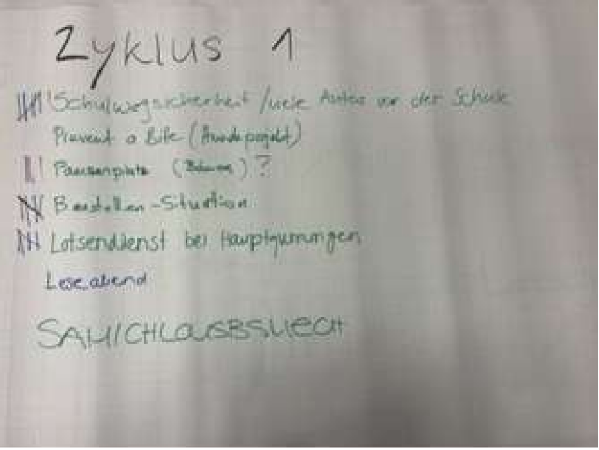 Zyklus 1
Schulwegsicherheit / viele Autos vor der Schule
Prevent a Bite (Hundeprojekt)
Pausenplatz ( ) ?
Baustellen-Situation
Lotsendienst bei Hauptquerungen
Leseabend
SAMICHLAUSBSUECH